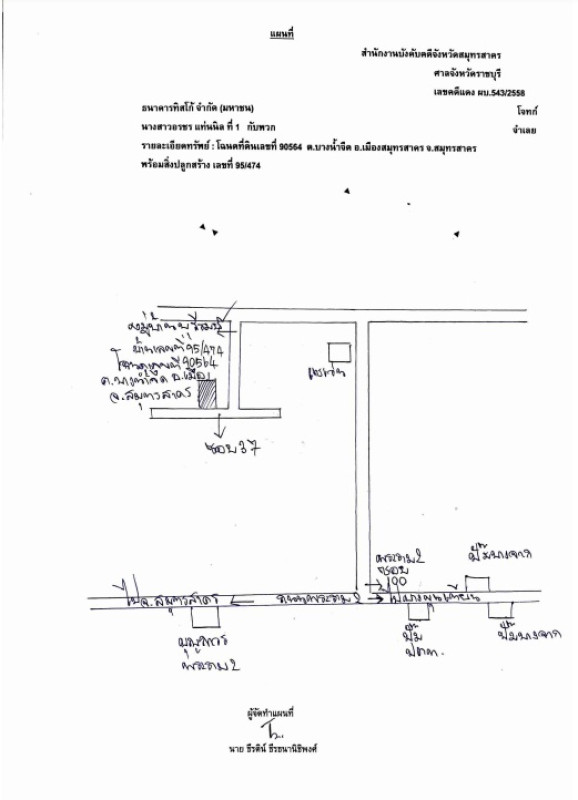 แผนที่
สำนักงานบังคับคดีจังหวัดสมุทรสาคร
ศาลจังหวัดราชบุรี
เลขคดีแดง ผบ.543/2558
ธนาคารทิสโก้ จำกัด (มหาชน) โจทก์
นางสาวอรชร แท่นนิล ที่ 1 กับพวก จำเลย
รายละเอียดทรัพย์ : โฉนดที่ดินเลขที่ 90564 ต.บางน้ำจืด อ.เมืองสมุทรสาคร จ.สมุทรสาคร
พร้อมสิ่งปลูกสร้าง เลขที่ 95/474
บ้านเลขที่ 95/474
โฉนดเลขที่ 90564
ต.บางน้ำจืด อ.เมือง
จ.สมุทรสาคร
ซอย 37
พระราม 2
ซอย
100
ปั๊มบางจาก
ไป จ.สมุทรสาคร
ถนนพระราม 2
ไปบางขุนเทียน
พระราม 2
ปั๊ม
ปตท.
ปั๊มบางจาก
ผู้จัดทำแผนที่
นาย ธีรศิน์ ธีรธนานิธิพงศ์